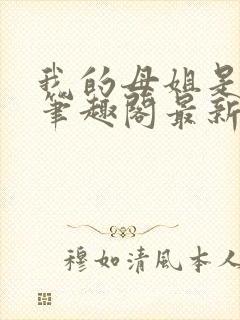 我的母姐是
笔趣阁最新
穆如清風本人